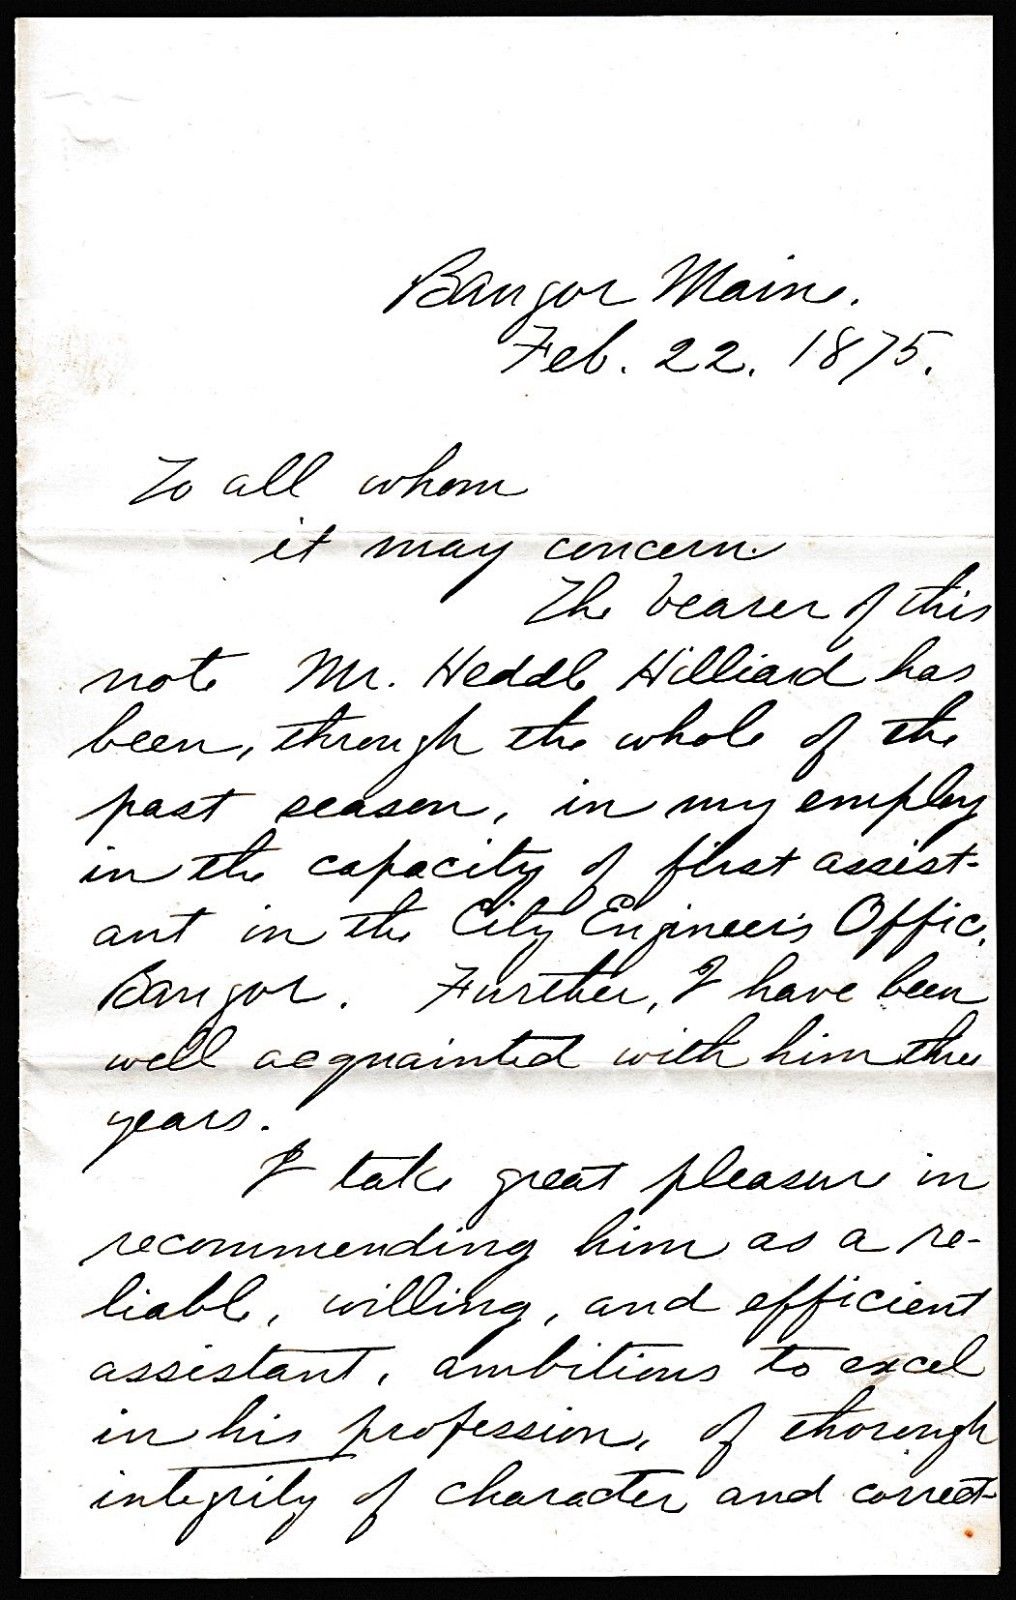 Bangor Maine.
Feb. 22. 1875.
To all whom
it may concern.
The bearer of this
note Mr. Heddle Hilliard has
been, through the whole of the
past season, in my employ
in the capacity of first assist-
ant in the City Engineer's Office,
Bangor. Further, I have been
well acquainted with him three
years.
I take great pleasure in
recommending him as a re-
liable, willing, and efficient
assistant, ambitious to excel
in his profession, of thorough
integrity of character and correct-